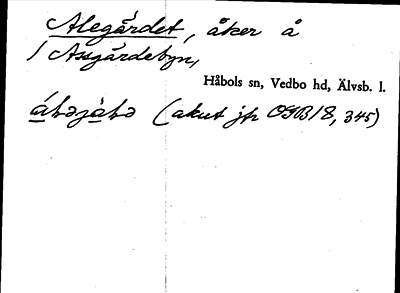 Alegårdet, åker å
/ Assgårdebyn,
Håbols sn, Vedbo hd, Älvsb. l.
(akut jfr OGB 18, 345)